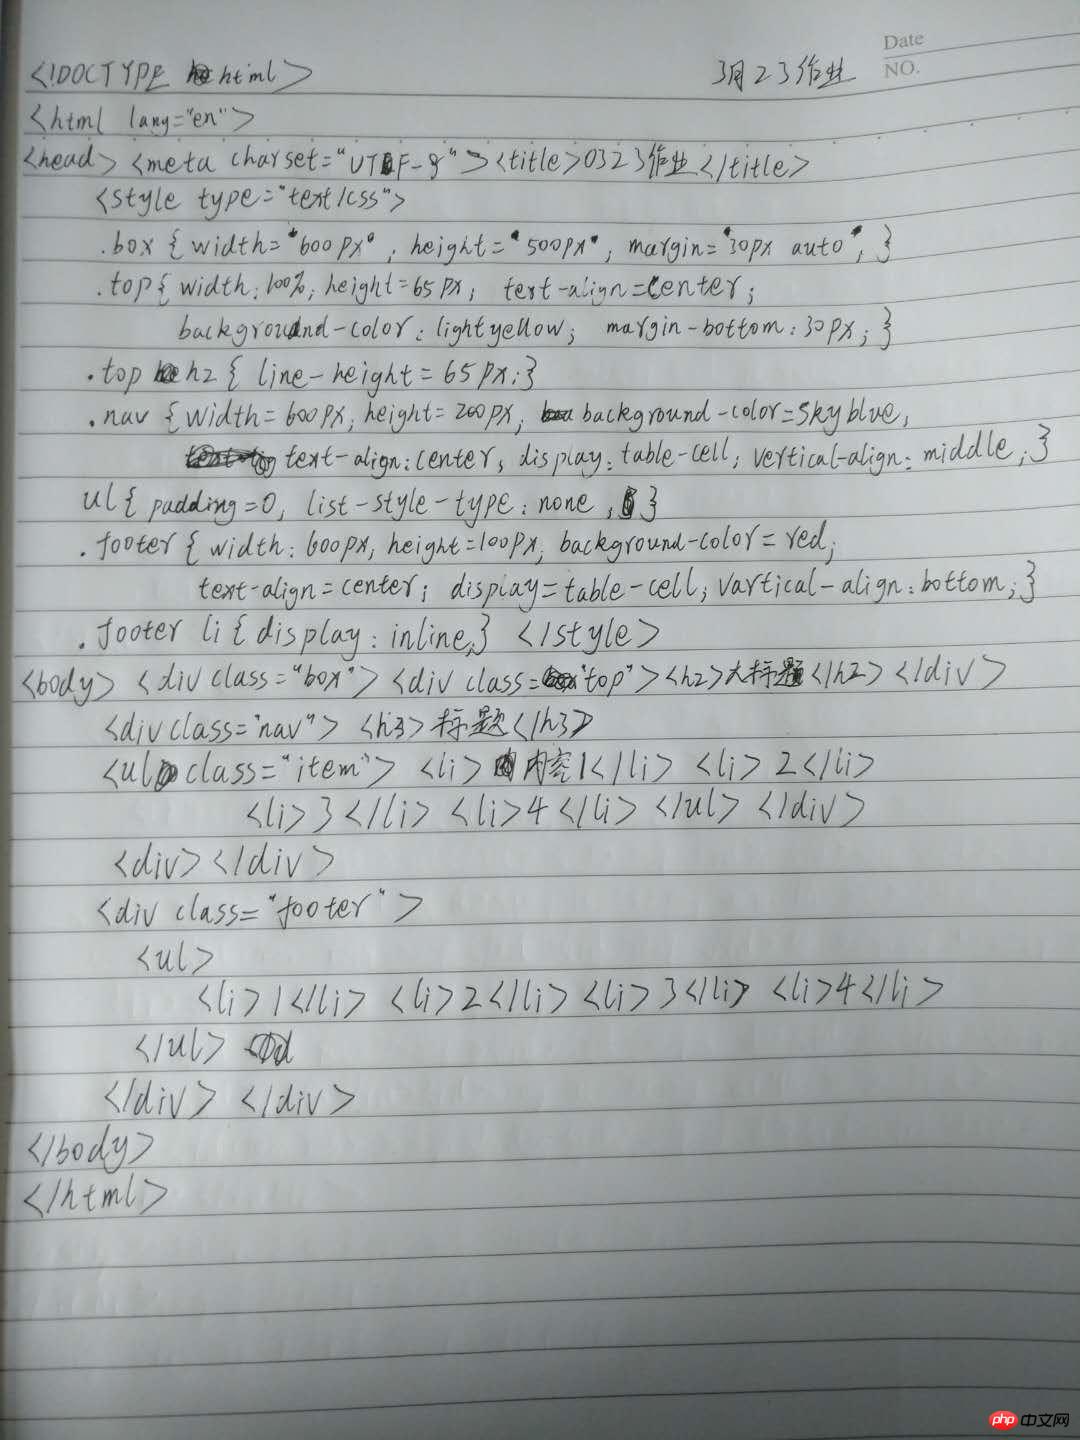 Date
NO.
<!DOCTYPE html> 3月23作业
<html lang="en">
<head> <meta charset="UTF-8"> <title>0323作业</title>
<style type="text/css">
.box { width="600px", height="500px", margin="30px auto", }
.top{ width:100%; height=65px; text-align=Center;
background-color:lightyellow; margin-bottom:30px; }
.top h2 { line-height=65px;}
.nav {width=600px, height=200px, background-color=skyblue,
text-align:center, display:table-cell; vertical-align:middle, }
ul{ padding=0, list-style-type:none , }
.footer { width:600px, height=100px, background-color=red;
text-align=center; display=table-cell; vartical-align:bottom; }
.footer li { display:inline;} </style>
<body> <div class="box"> <div class="top"> <h2>大标题</h2> </div>
<div class="nav"> <h3>标题</h3>
<ul class="item"> <li>内容1</li> <li>2</li>
<li>3</li> <li>4</li> </ul> </div>
<div></div>
<div class="footer">
<ul>
<li>1</li> <li>2</li> <li>3</li> <li>4</li>
</ul>
</div> </div>
</body>
</html>
php中文网